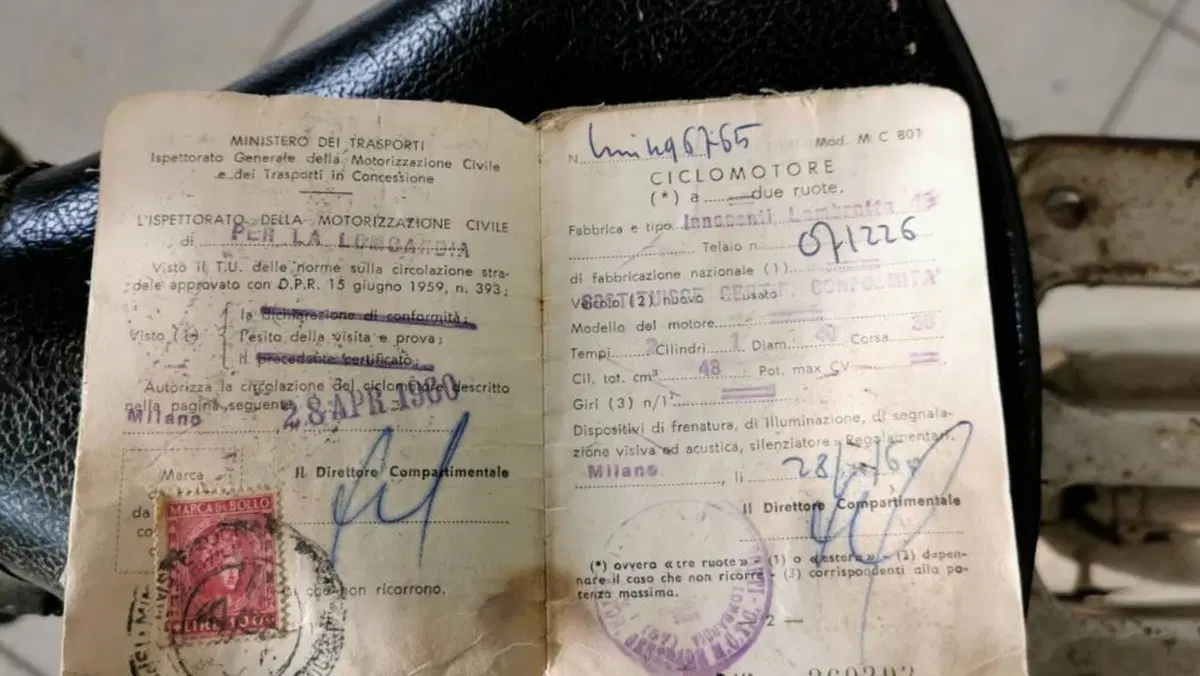 MINISTERO DEI TRASPORTI
Ispettorato Generale della Motorizzazione Civile
e dei Trasporti in Concessione
L'ISPETTORATO DELLA MOTORIZZAZIONE CIVILE
di PER LA LOMBARDIA
Visto il T.U. delle norme sulla circolazione stra-
dale approvato con D.P.R. 15 giugno 1959, n. 393;
la dichiarazione di conformità;
Visto (1) l'esito della visita e prova;
il precedente certificato;
Autorizza la circolazione del ciclomotore descritto
nella pagina seguente
Milano 28 APR 1960
Marca
Il Direttore Compartimentale
da
MARCA DA BOLLO
LIRE 100
che non ricorrono.
N. 6765 Mod. M C 801
CICLOMOTORE
(*) a due ruote.
Fabbrica e tipo Innocenti Lambretta 48
Telaio n. 071226
di fabbricazione nazionale (1)
Veicolo (2) nuovo usato
SOSTITUISCE CERTIF. CONFORMITA'
Modello del motore
Tempi 2 Cilindri 1 Diam. 40 Corsa 38
Cil. tot. cm³ 48 Pot. max CV
Giri (3) n/1'
Dispositivi di frenatura, di illuminazione, di segnala-
zione visiva ed acustica, silenziatore: Regolamentari.
Milano, li 28
Il Direttore Compartimentale
(*) ovvero «tre ruote» (1) o «estera» - (2) depen-
nare il caso che non ricorre - (3) corrispondenti alla po-
tenza massima.
2 —